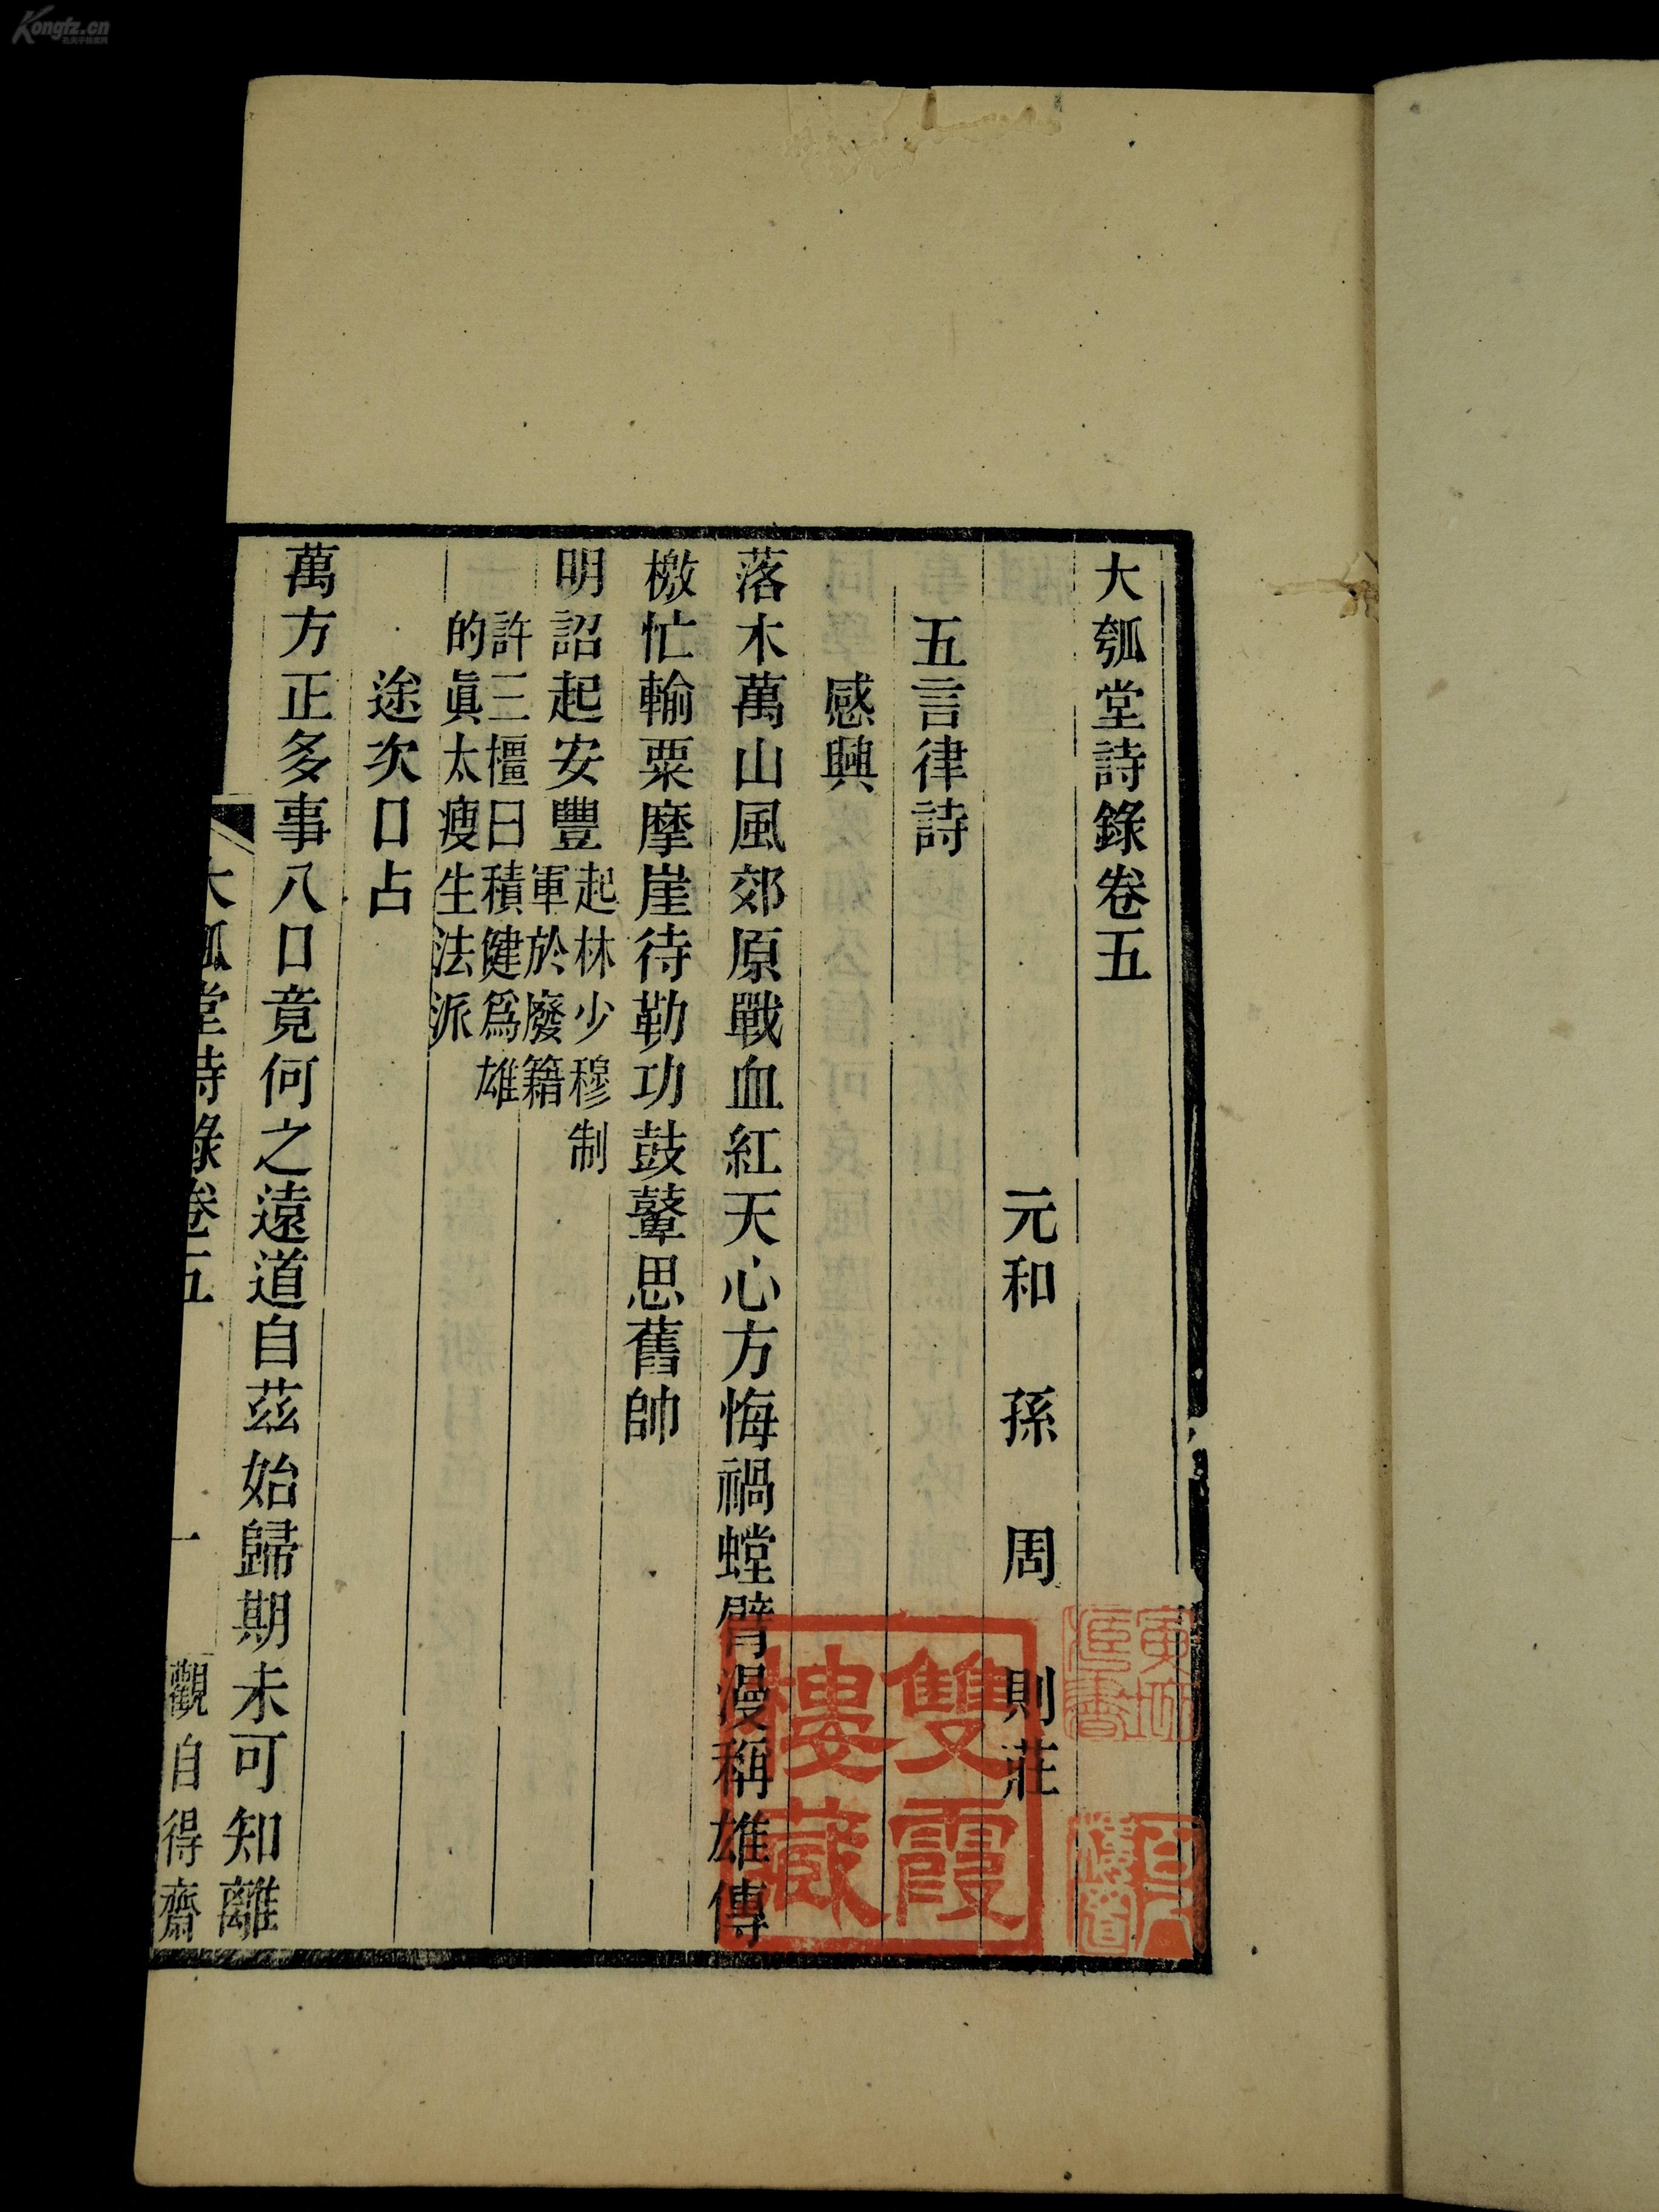 大瓠堂詩錄卷五
元和 孫 周 則莊
五言律詩
感興
落木萬山風郊原戰血紅天心方悔禍螳臂漫稱雄傳
檄忙輸粟摩崖待勒功鼓鼙思舊帥
明詔起安豐
起林少穆制
軍於廢籍
許三橿曰積健爲雄
的眞太瘦生法派
途次口占
萬方正多事八口竟何之遠道自茲始歸期未可知離
大瓠堂詩錄卷五
一
觀自得齋
雙霞樓藏
Kongfz.cn
孔夫子旧书网